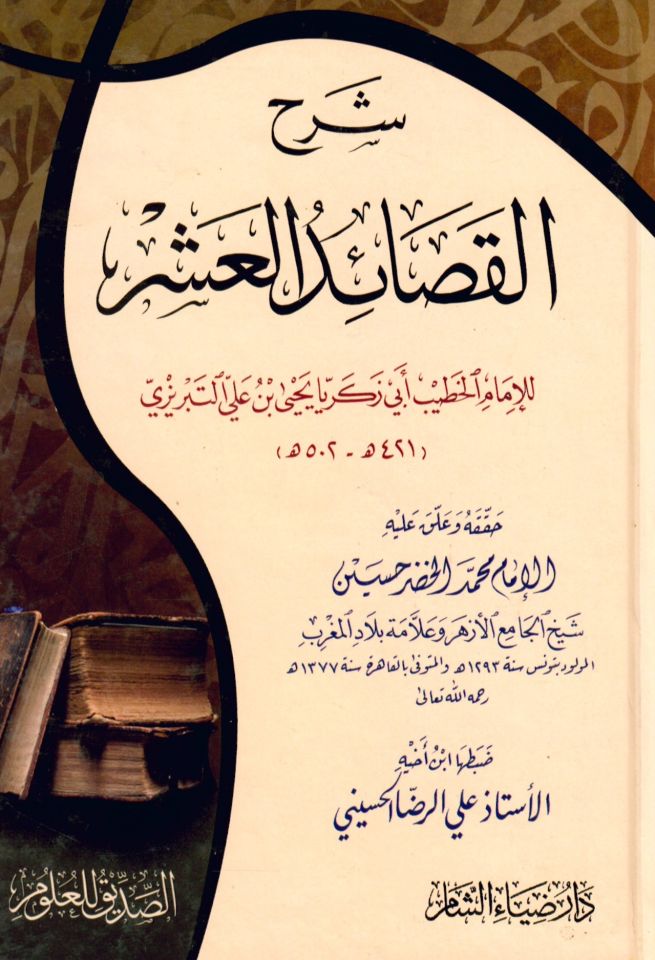 شرح
القصائد العشر
للإمام الخطيب أبي زكريا يحيى بن علي التبريزي
(٤٢١ھ - ٥٠٢ھ)
حققه وعلق عليه
الإمام محمد الخضر حسين
شيخ الجامع الأزهر وعلامة بلاد المغرب
المولود بتونس سنة ١٢٩٣ھ والمتوفى بالقاهرة سنة ١٣٧٧ھ
رحمه الله تعالى
ضبطها ابن أخيه
الأستاذ علي الرضا الحسيني
دار ضياء الشام
الصديق للعلوم